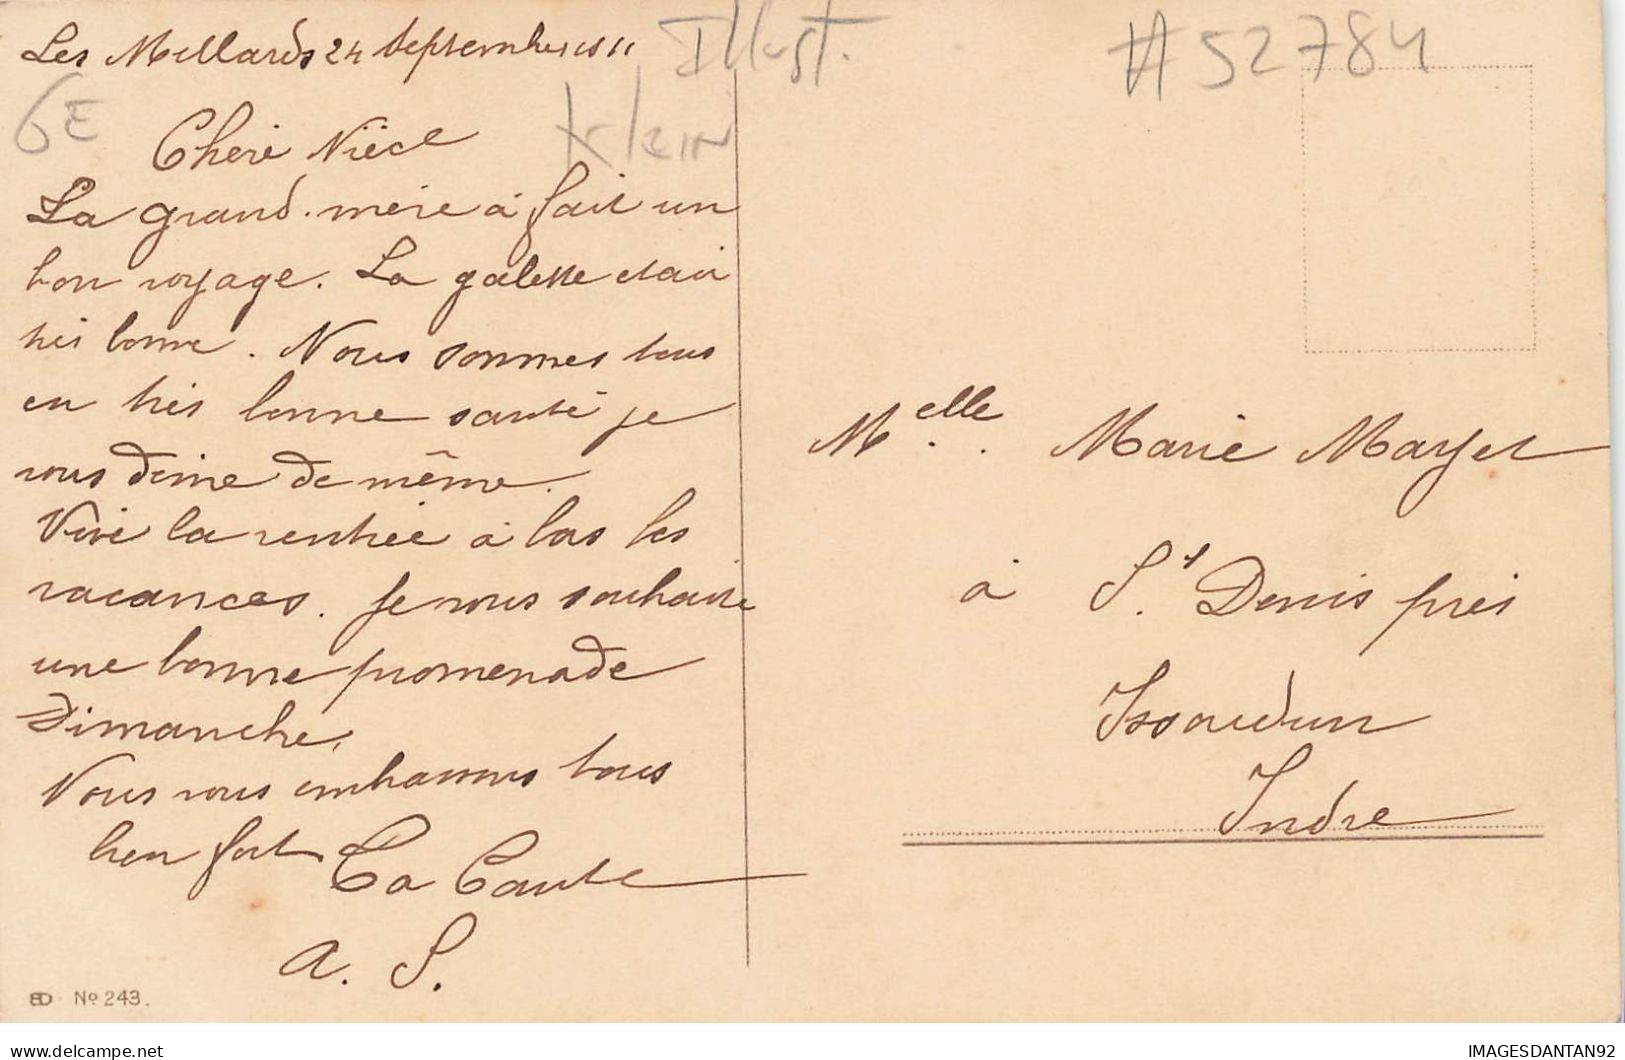 Les Millards 24 Septembre 1911
Illust.
#52784
6E
Klein
Chère Nièce
La grand-mère à fait un
bon voyage. La galette était
très bonne. Nous sommes tous
en très bonne santé je
vous désire de même.
Vive la rentrée à bas les
vacances. Je vous souhaite
une bonne promenade
Dimanche.
Nous vous embrassons tous
bien fort Ta Tante
A. S.
Melle. Marie
à St. Denis près
Issoudun
Indre
ED No 243.
delcampe.net
IMAGESDANTAN92